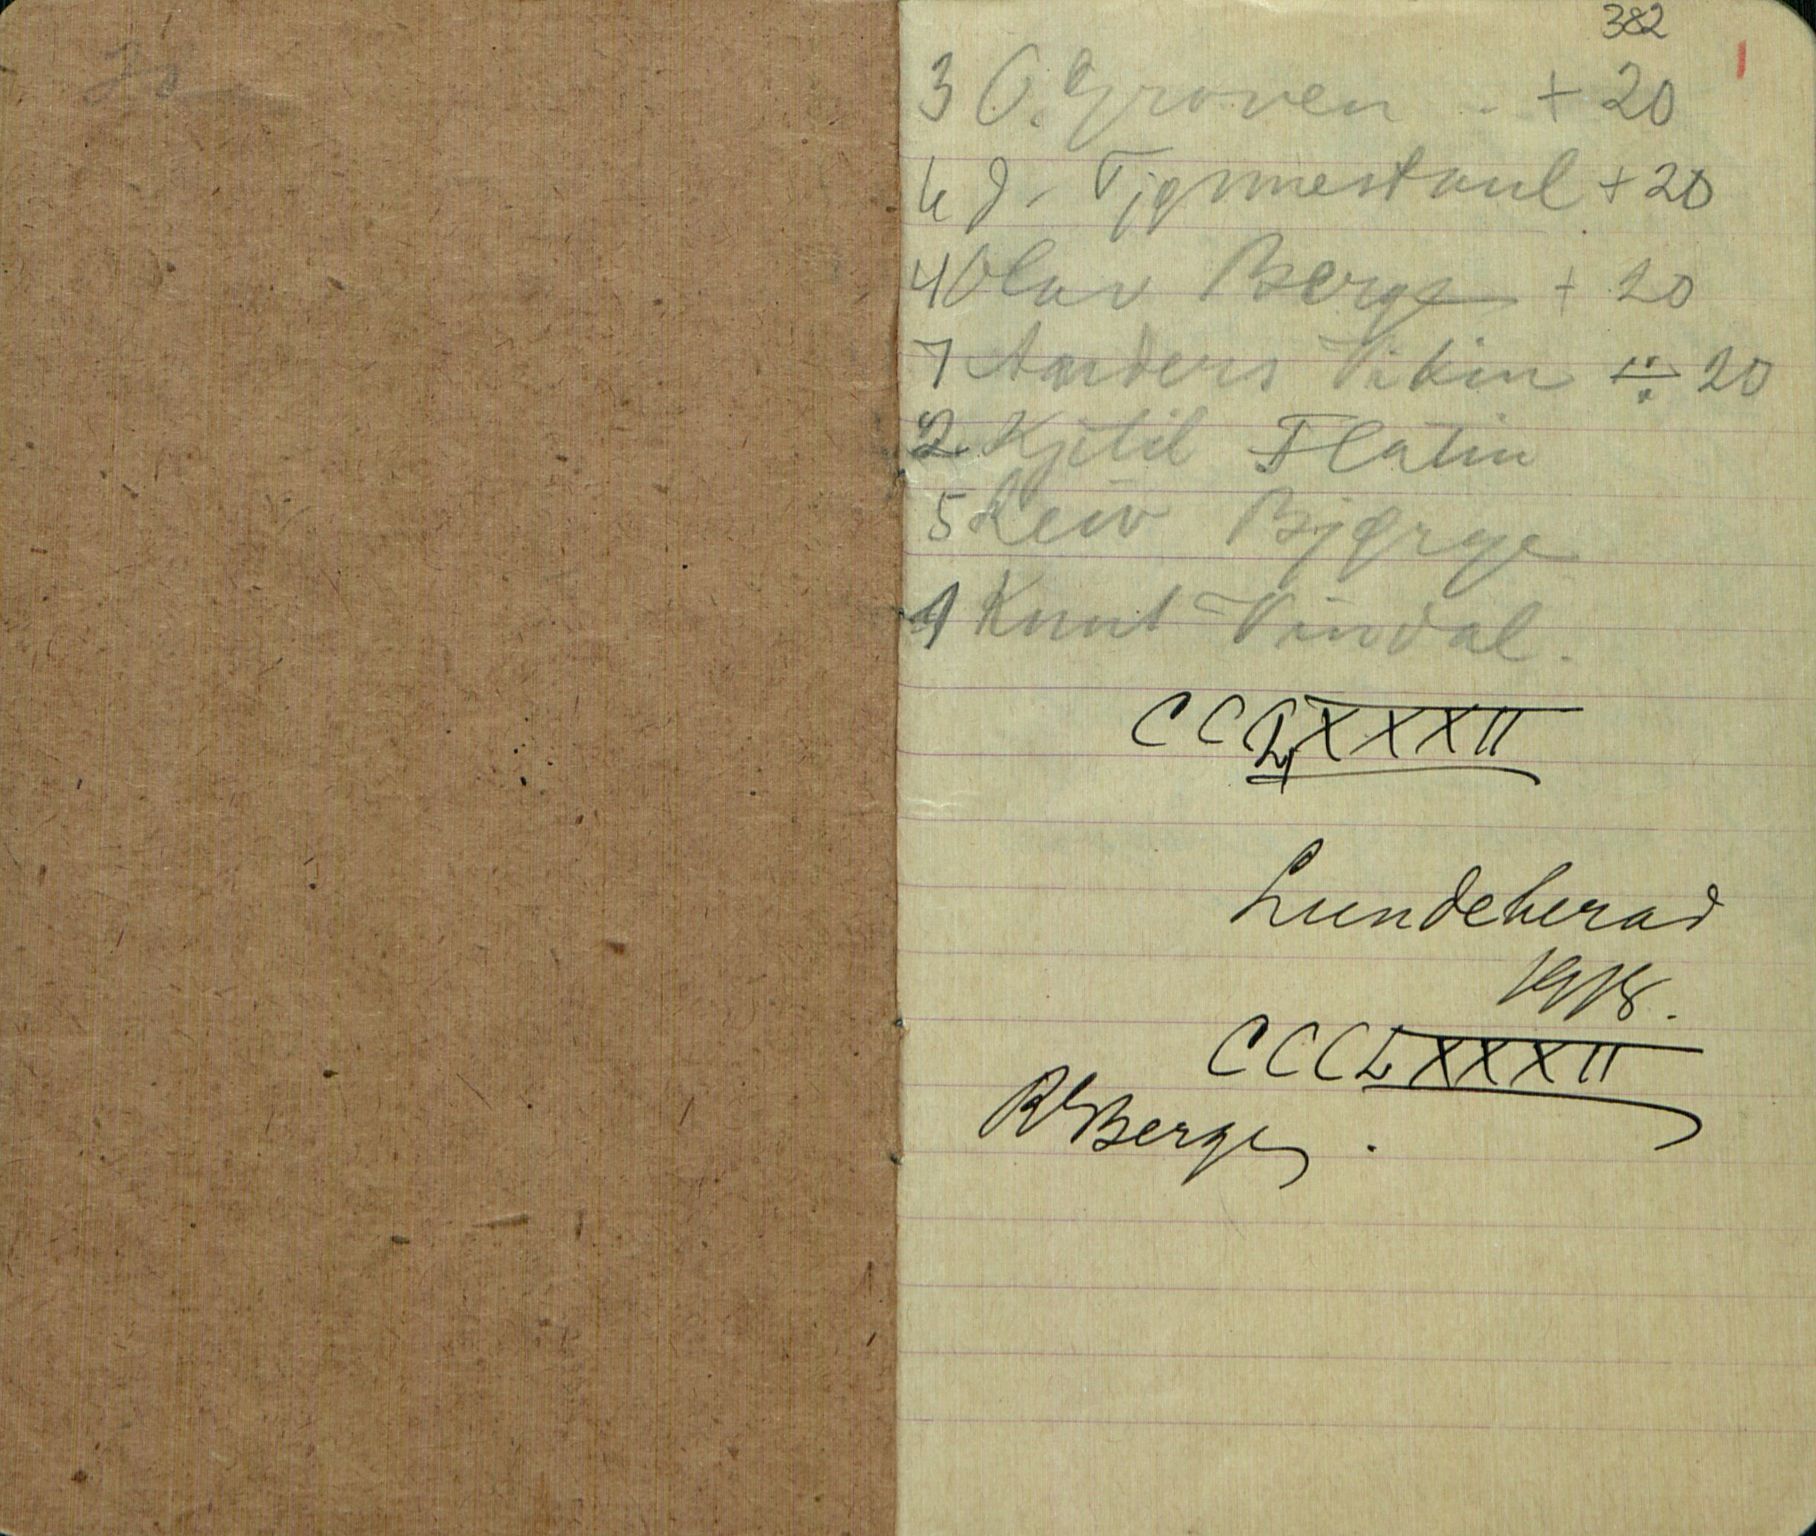 382
3 O. Groven + 20
6 J. Tjønnestaul + 20
4 Olav Berge + 20
7 Anders Vikin ÷ 20
2 Kjetil Flatin
5 Leiv Bjørge
1 Knut Vindal.
CCLXXXII
Lundeherad
1918.
CCCLXXXII
RBerge.